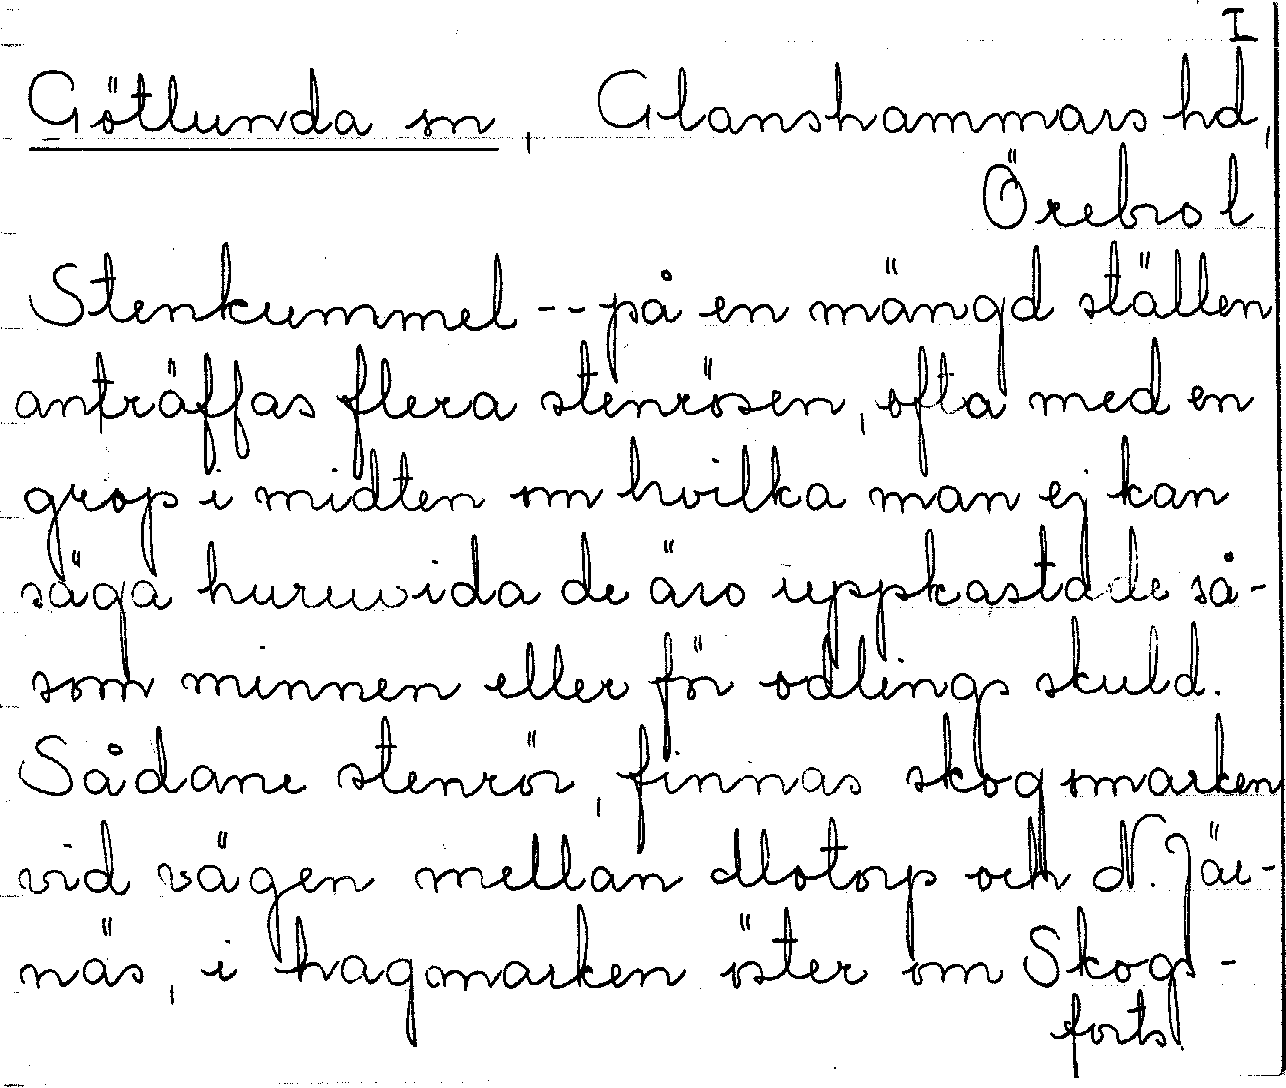 I
Götlunda sn, Glanshammars hd,
Örebro l
Stenkummel -- på en mängd ställen
anträffas flera stenrösen, ofta med en
grop i midten om hvilka man ej kan
säga huruvida de äro uppkastade så-
som minnen eller för odlings skuld.
Sådane stenrör, finnas skogsmarken
vid vägen mellan Motorp och N. Jär-
näs, i hagmarken öster om Skogs-
forts